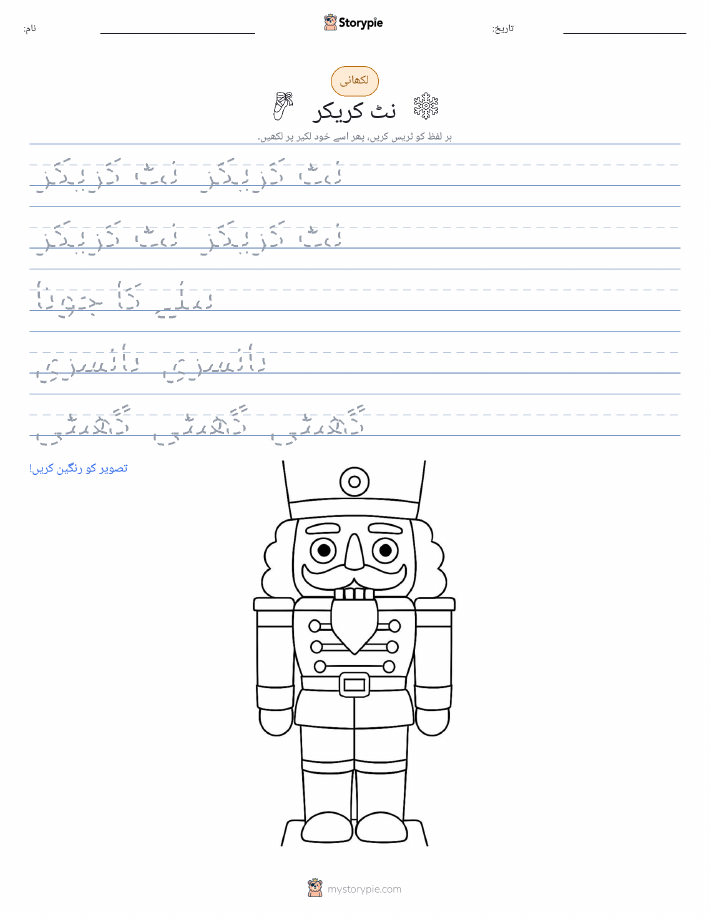 نام:
Storypie
تاریخ:
لکھائی
نٹ کریکر
ہر لفظ کو ٹریس کریں، پھر اسے خود لکیر پر لکھیں۔
نٹ کریکر نٹ کریکر
نٹ کریکر نٹ کریکر
بیلے کا جوتا
ڈانسری ڈانسری
گھنٹی گھنٹی گھنٹی
تصویر کو رنگین کریں!
mystorypie.com